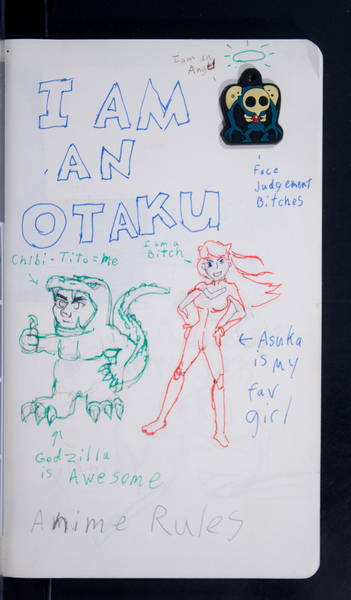 I am an
Angel
I AM
AN
OTAKU
Face
Judgement
Bitches
I am a
Bitch
Chibi-Tito=me
← Asuka
is my
fav
girl
Godzilla
is Awesome
Anime Rules